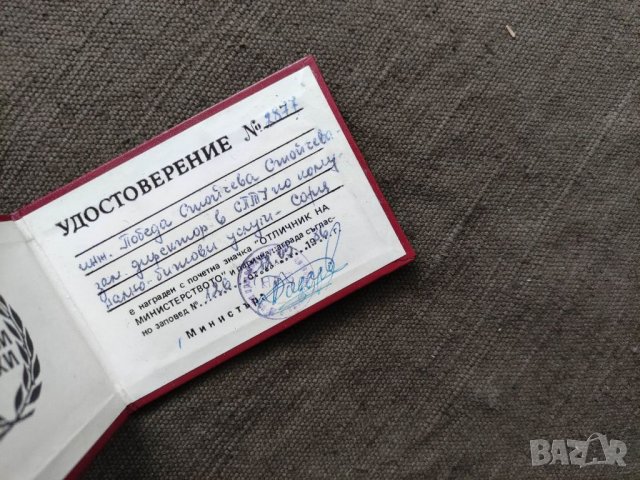 УДОСТОВЕРЕНИЕ № 2877
инж. Победа Стойчева Стойчева -
зам. директор в СПТУ по кому-
нално-битови услуги - София
е награден с почетна значка "ОТЛИЧНИК НА
МИНИСТЕРСТВОТО" и парична награда съглас-
но заповед №
Министър
М
ХИ
BAZAR
bg